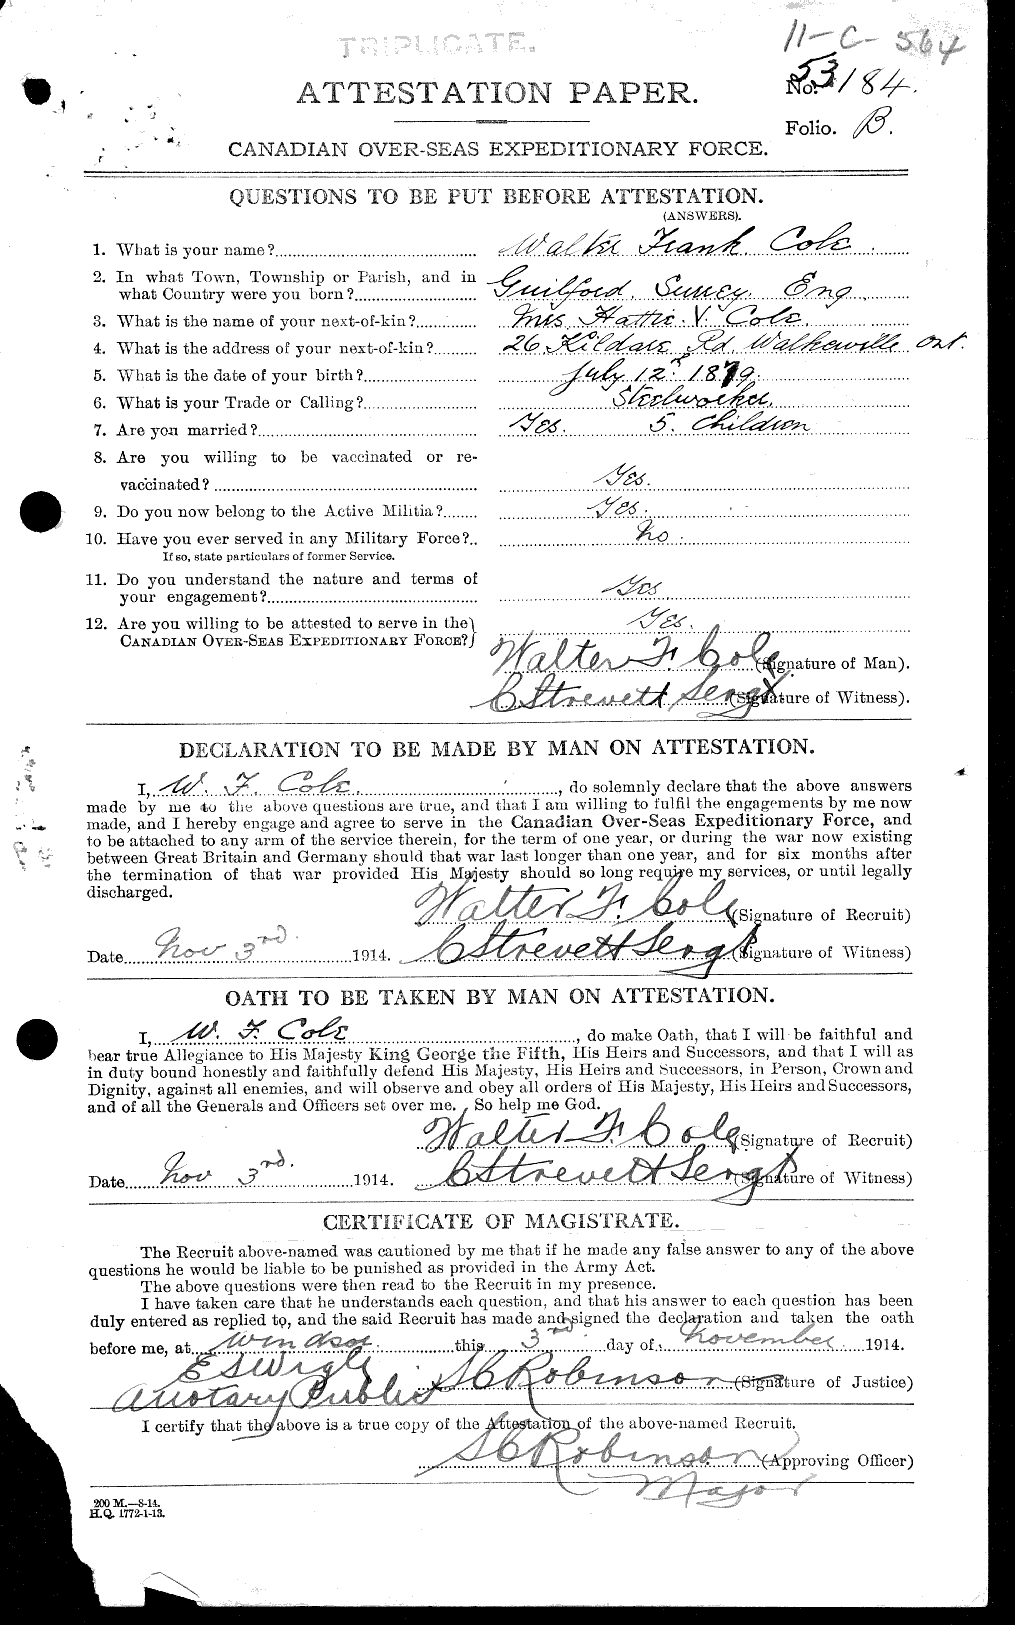 TRIPLICATE.
11-C-564
ATTESTATION PAPER.
No. 53184.
Folio. B.
CANADIAN OVER-SEAS EXPEDITIONARY FORCE.
QUESTIONS TO BE PUT BEFORE ATTESTATION.
(ANSWERS).
1. What is your name? Walter Frank Cole.
2. In what Town, Township or Parish, and in
what Country were you born? Guilford, Surrey. Eng.
3. What is the name of your next-of-kin? Mrs Hattie. V. Cole.
4. What is the address of your next-of-kin? 26 Kildare Rd. Walkerville Ont.
5. What is the date of your birth? July 12th 1879.
6. What is your Trade or Calling? Steelworker.
7. Are you married? Yes. 5. Children
8. Are you willing to be vaccinated or re-
vaccinated? Yes.
9. Do you now belong to the Active Militia? Yes.
10. Have you ever served in any Military Force? No.
If so, state particulars of former Service.
11. Do you understand the nature and terms of
your engagement? Yes
12. Are you willing to be attested to serve in the
CANADIAN OVER-SEAS EXPEDITIONARY FORCE? Yes.
Walter F. Cole (Signature of Man).
C Strevett Sergt (Signature of Witness).
DECLARATION TO BE MADE BY MAN ON ATTESTATION.
I, W. F. Cole, do solemnly declare that the above answers
made by me to the above questions are true, and that I am willing to fulfil the engagements by me now
made, and I hereby engage and agree to serve in the Canadian Over-Seas Expeditionary Force, and
to be attached to any arm of the service therein, for the term of one year, or during the war now existing
between Great Britain and Germany should that war last longer than one year, and for six months after
the termination of that war provided His Majesty should so long require my services, or until legally
discharged.
Walter F. Cole (Signature of Recruit)
Date Nov 3rd. 1914. C Strevett Sergt (Signature of Witness)
OATH TO BE TAKEN BY MAN ON ATTESTATION.
I, W. F. Cole, do make Oath, that I will be faithful and
bear true Allegiance to His Majesty King George the Fifth, His Heirs and Successors, and that I will as
in duty bound honestly and faithfully defend His Majesty, His Heirs and Successors, in Person, Crown and
Dignity, against all enemies, and will observe and obey all orders of His Majesty, His Heirs and Successors,
and of all the Generals and Officers set over me. So help me God.
Walter F. Cole (Signature of Recruit)
Date Nov 3rd. 1914. C Strevett Sergt (Signature of Witness)
CERTIFICATE OF MAGISTRATE.
The Recruit above-named was cautioned by me that if he made any false answer to any of the above
questions he would be liable to be punished as provided in the Army Act.
The above questions were then read to the Recruit in my presence.
I have taken care that he understands each question, and that his answer to each question has been
duly entered as replied to, and the said Recruit has made and signed the declaration and taken the oath
before me, at Windsor this 3rd day of November 1914.
E S Wigle
A Notary Public S C Robinson (Signature of Justice)
I certify that the above is a true copy of the Attestation of the above-named Recruit.
S C Robinson (Approving Officer)
Major
200 M.—8-14.
H.Q. 1772-1-13.